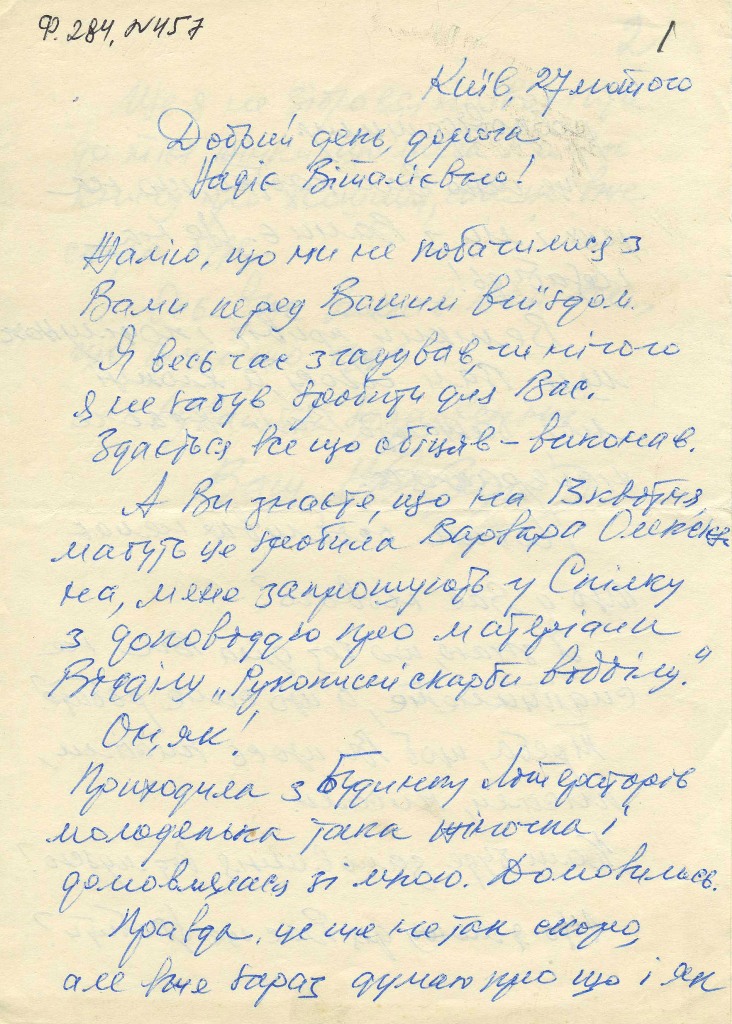 Ф. 284, № 457
1
Київ, 27 лютого
Добрий день, дорога
Надіє Віталієвно!
Жалію, що ми не побачилися з
Вами перед Вашим виїздом.
Я весь час згадував, чи нічого
я не забув зробити для Вас.
Здається все що обіцяв – виконав.
А Ви знаєте, що на 13 квітня,
мабуть це зробила Варвара Олексіїв-
на, мене запрошують у Спілку
з доповіддю про матеріали
Відділу „Рукописні скарби відділу."
Он, як!
Приходила з Будинку Літераторів
молоденька така жіночка і
домовлялася зі мною. Домовились.
Правда, це ще не так скоро,
але вже зараз думаю про що і як